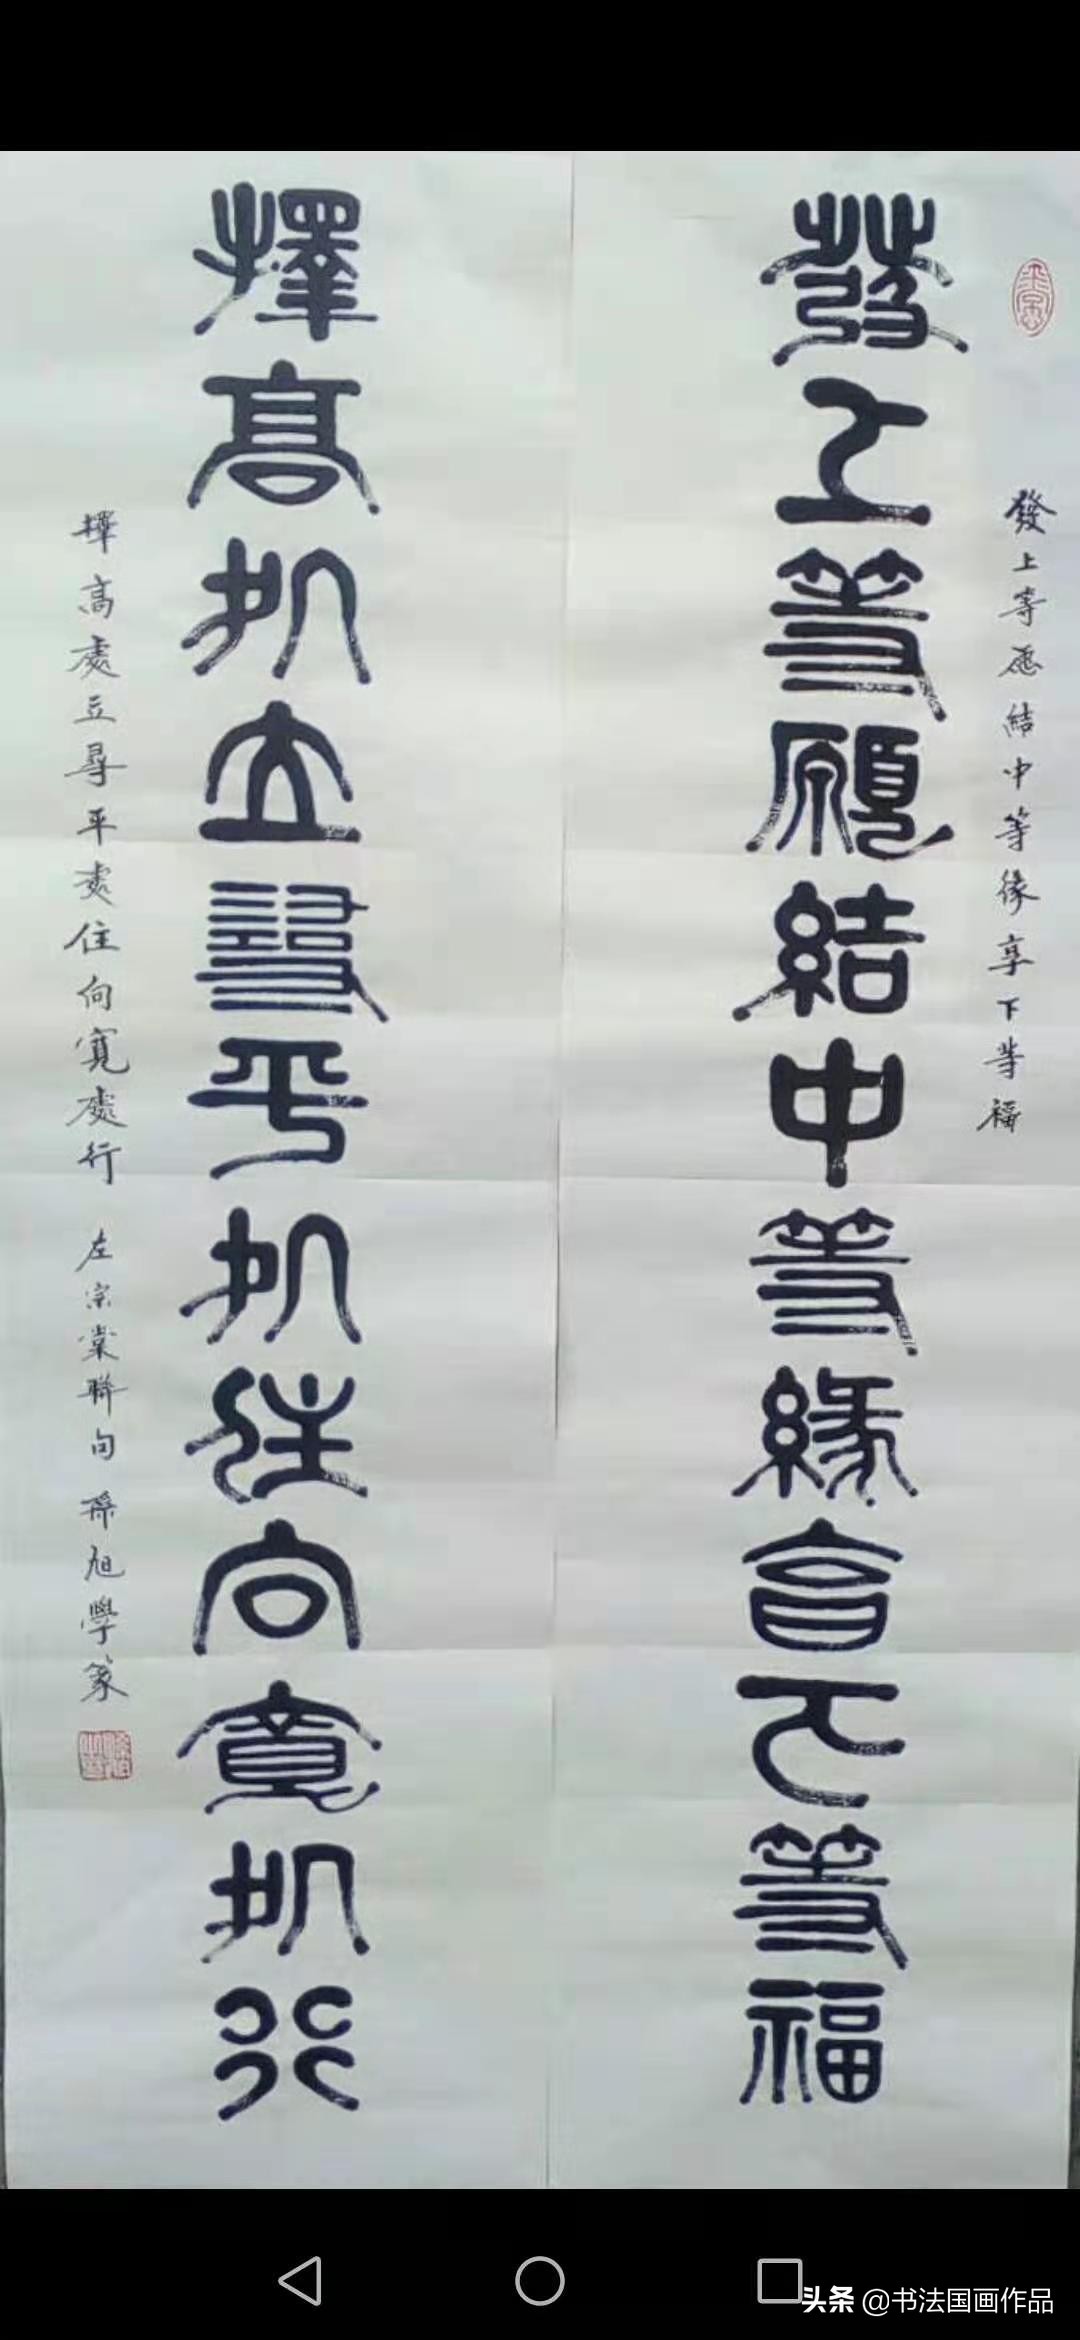 發上等願結中等緣享下等福
擇高処立尋平処住向寬処行
發上等愿結中等缘享下等福
擇高處立尋平處住向寬處行 左宗棠聯句 孫旭學篆
头条 @书法国画作品